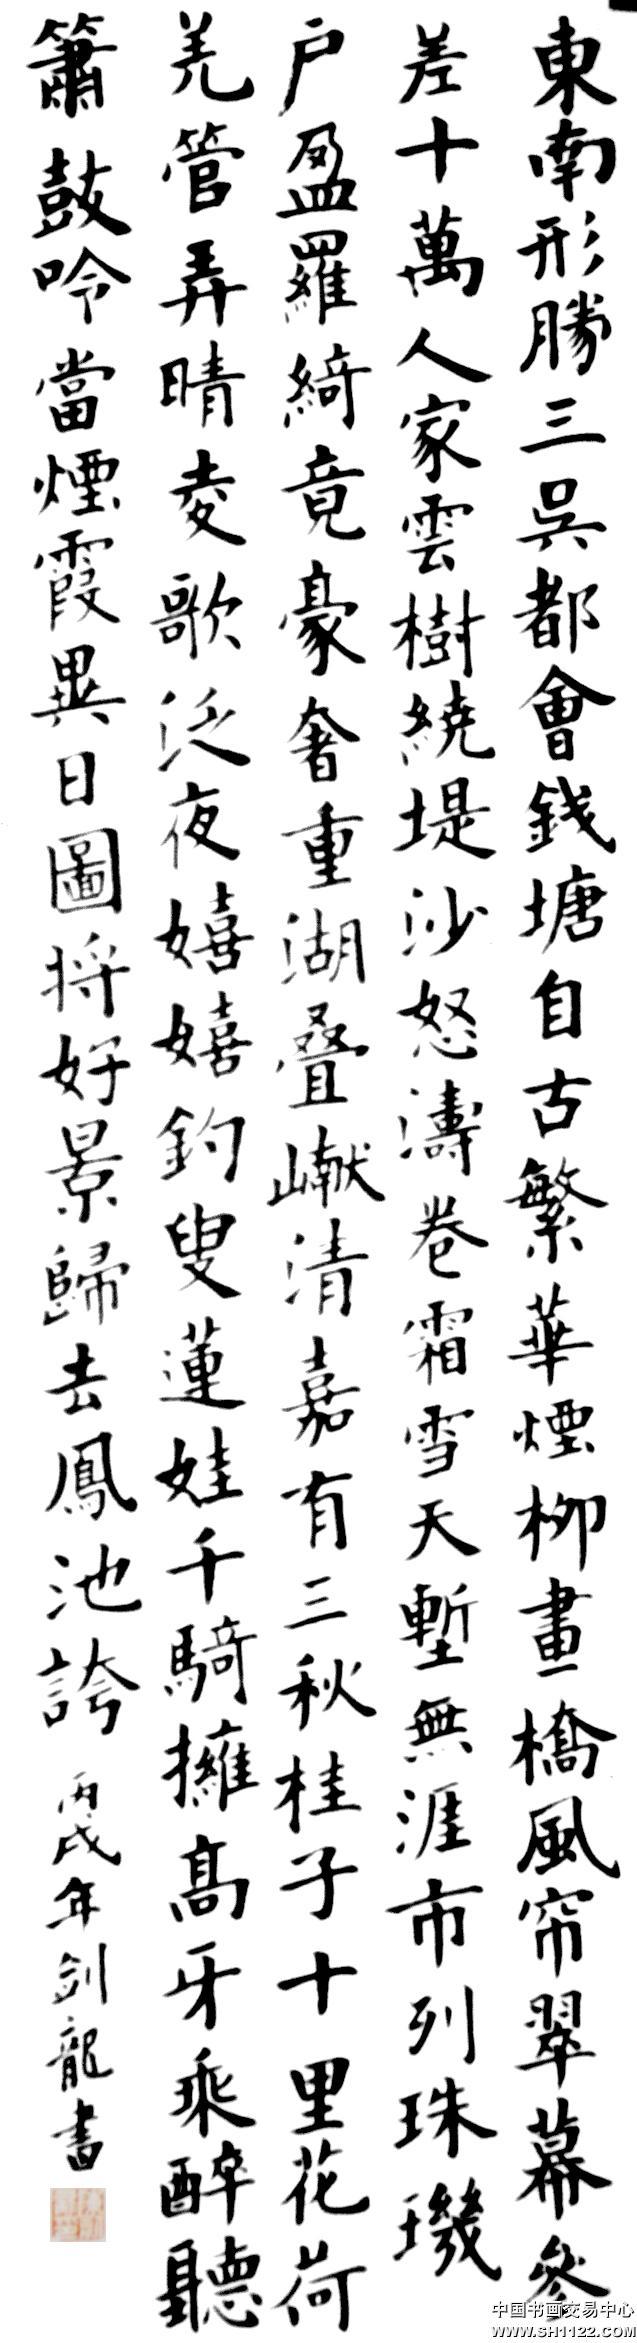 東南形勝三吳都會錢塘自古繁華煙柳畫橋風帘翠幕參
差十萬人家雲樹繞堤沙怒濤卷霜雪天塹無涯市列珠璣
戶盈羅綺竟豪奢重湖疊巘清嘉有三秋桂子十里花荷
羌管弄晴菱歌泛夜嬉嬉釣叟蓮娃千騎擁高牙乘醉聽
簫鼓吟當煙霞異日圖將好景歸去鳳池誇
丙戌年劍龍書
中国书画交易中心
www.SH1122.com